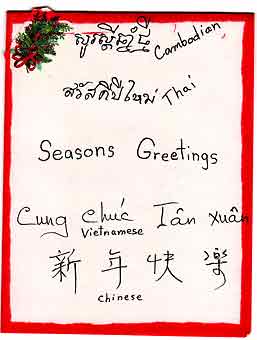 សួរស្តីឆ្នាំថ្មី Cambodian
สวัสดีปีใหม่ Thai
Seasons Greetings
Cung Chúc Tân Xuân
Vietnamese
新年快樂
Chinese